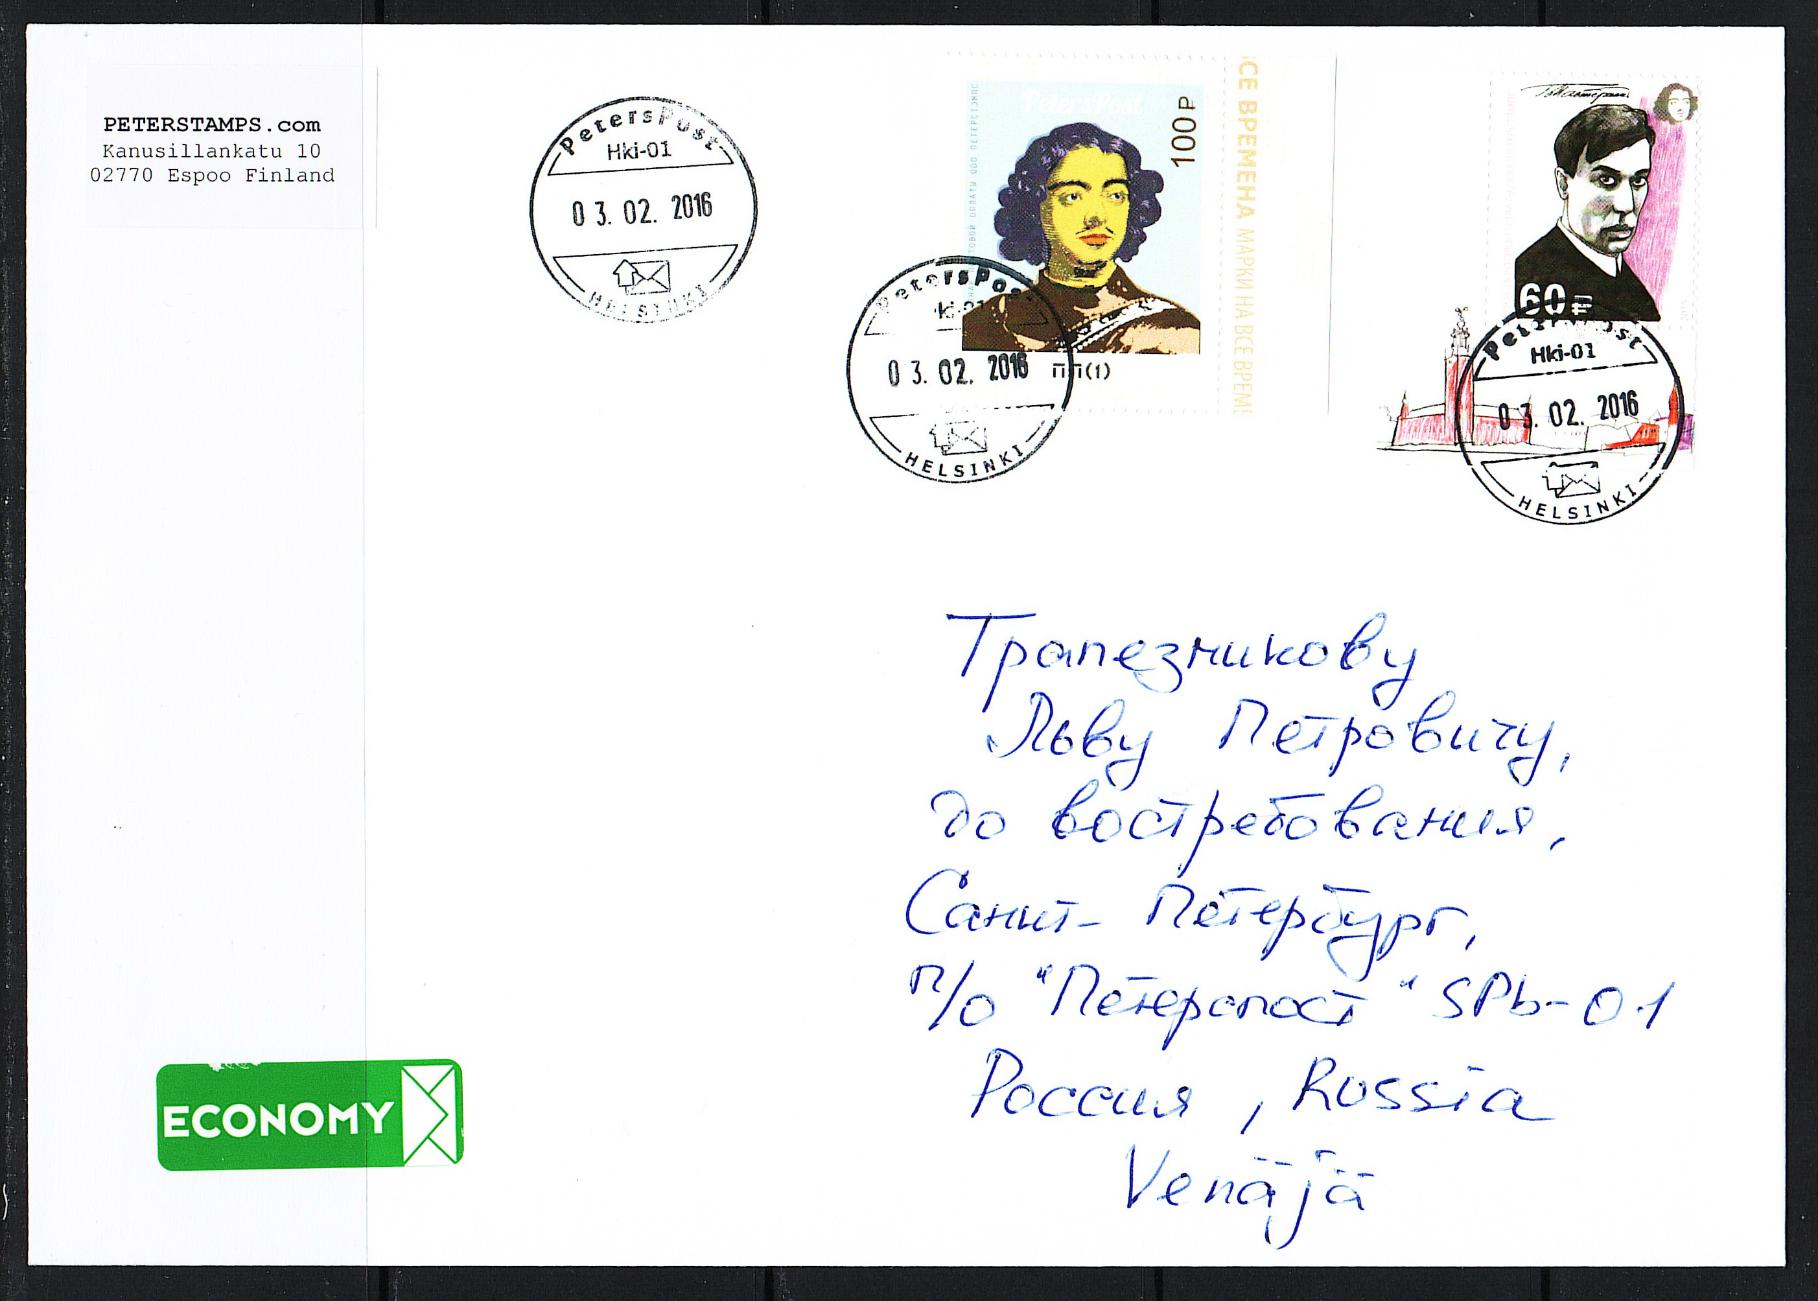 PETERSTAMPS.com
Kanusillankatu 10
02770 Espoo Finland
PetersPost
Hki-01
03.02.2016
HELSINKI
PetersPost
100 Р
СЕ ВРЕМЕНА МАРКИ НА ВСЕ ВРЕМЕ
ПП(1)
PetersPost
Hki-01
03.02.2016
HELSINKI
60 ₽
PetersPost
Hki-01
03.02.2016
HELSINKI
Трапезникову
Льву Петровичу,
до востребования,
Санкт-Петербург,
п/о "Петерспост" SPb-01
Россия, Russia
Venäjä
ECONOMY